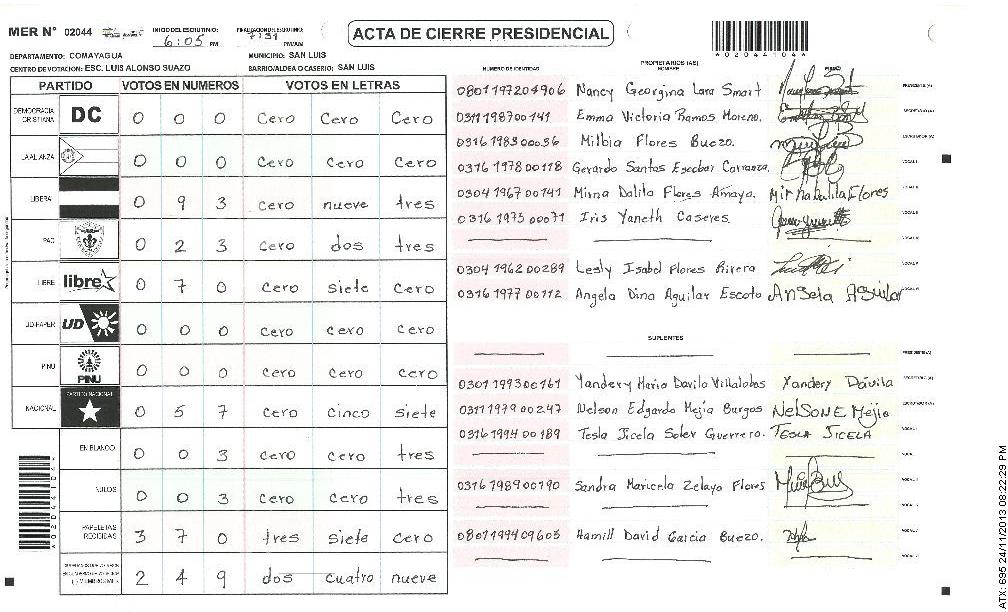 MER Nº 02044
INICIO DEL ESCRUTINIO: 6:05 PM
ACTA DE CIERRE PRESIDENCIAL
*02044104*
DEPARTAMENTO: COMAYAGUA MUNICIPIO: SAN LUIS
CENTRO DE VOTACION: ESC. LUIS ALONSO SUAZO BARRIO/ALDEA O CASERIO: SAN LUIS
PARTIDO VOTOS EN NUMEROS VOTOS EN LETRAS
DEMOCRACIA CRISTIANA DC 0 0 0 Cero Cero Cero
LA ALIANZA 0 0 0 Cero Cero Cero
LIBERA 0 9 3 cero nueve tres
PAC 0 2 3 cero dos tres
LIBRE libre 0 7 0 cero siete cero
UD-FAPER UD 0 0 0 cero cero cero
PINU PINU 0 0 0 cero cero cero
NACIONAL PARTIDO NACIONAL 0 5 7 cero cinco siete
EN BLANCO 0 0 3 cero cero tres
NULOS 0 0 3 cero cero tres
PAPELETAS RECIBIDAS 3 7 0 tres siete cero
2 4 9 dos cuatro nueve
NUMERO DE IDENTIDAD PROPIETARIOS (AS) NOMBRE FIRMA
0801197204906 Nancy Georgina Lara Smart
0311198700141 Emma Victoria Ramos Moreno.
0316198300036 Milbia Flores Buezo.
0316197800118 Gerardo Santos Escobar Carranza.
0304196700141 Mirna Dalila Flores Amaya. Mirna Dalila Flores
0316197300071 Iris Yaneth Caseres.
0304196200289 Lesly Isabel Flores Rivera
0316197700112 Angela Dina Aguilar Escoto Angela Aguilar
SUPLENTES
0301199300161 Yandery Maria Davila Villalobos Yandery Dávila
0311197900247 Nelson Edgardo Mejia Burgos NELSON E Mejia
0316199400189 Tesla Jicela Soler Guerrero. TESLA JICELA
0316198900190 Sandra Maricela Zelaya Flores
0801199409603 Hamill David Garcia Buezo.
ATX: 695 24/11/2013 08:22:29 PM